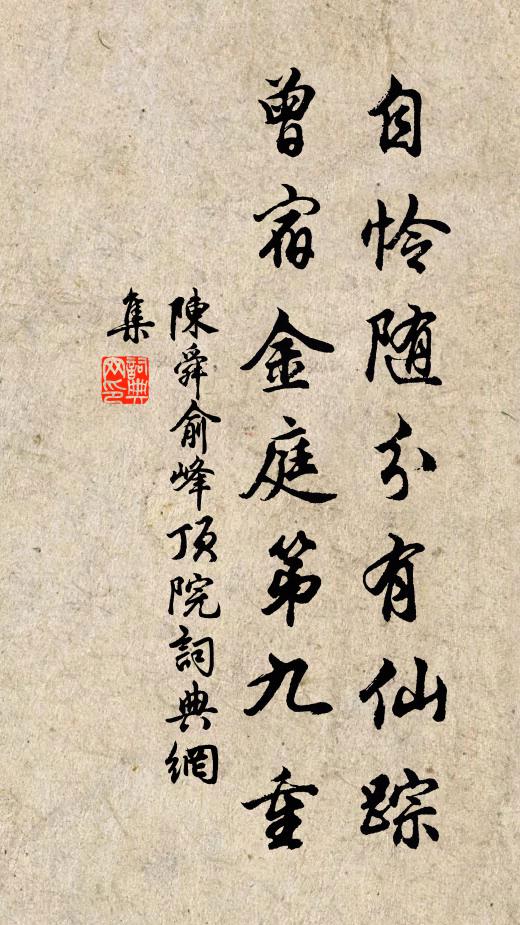 自怜随分有仙踪
曾宿金庭第九重
陳舜俞峰頂院詞典網
集
詞典网印